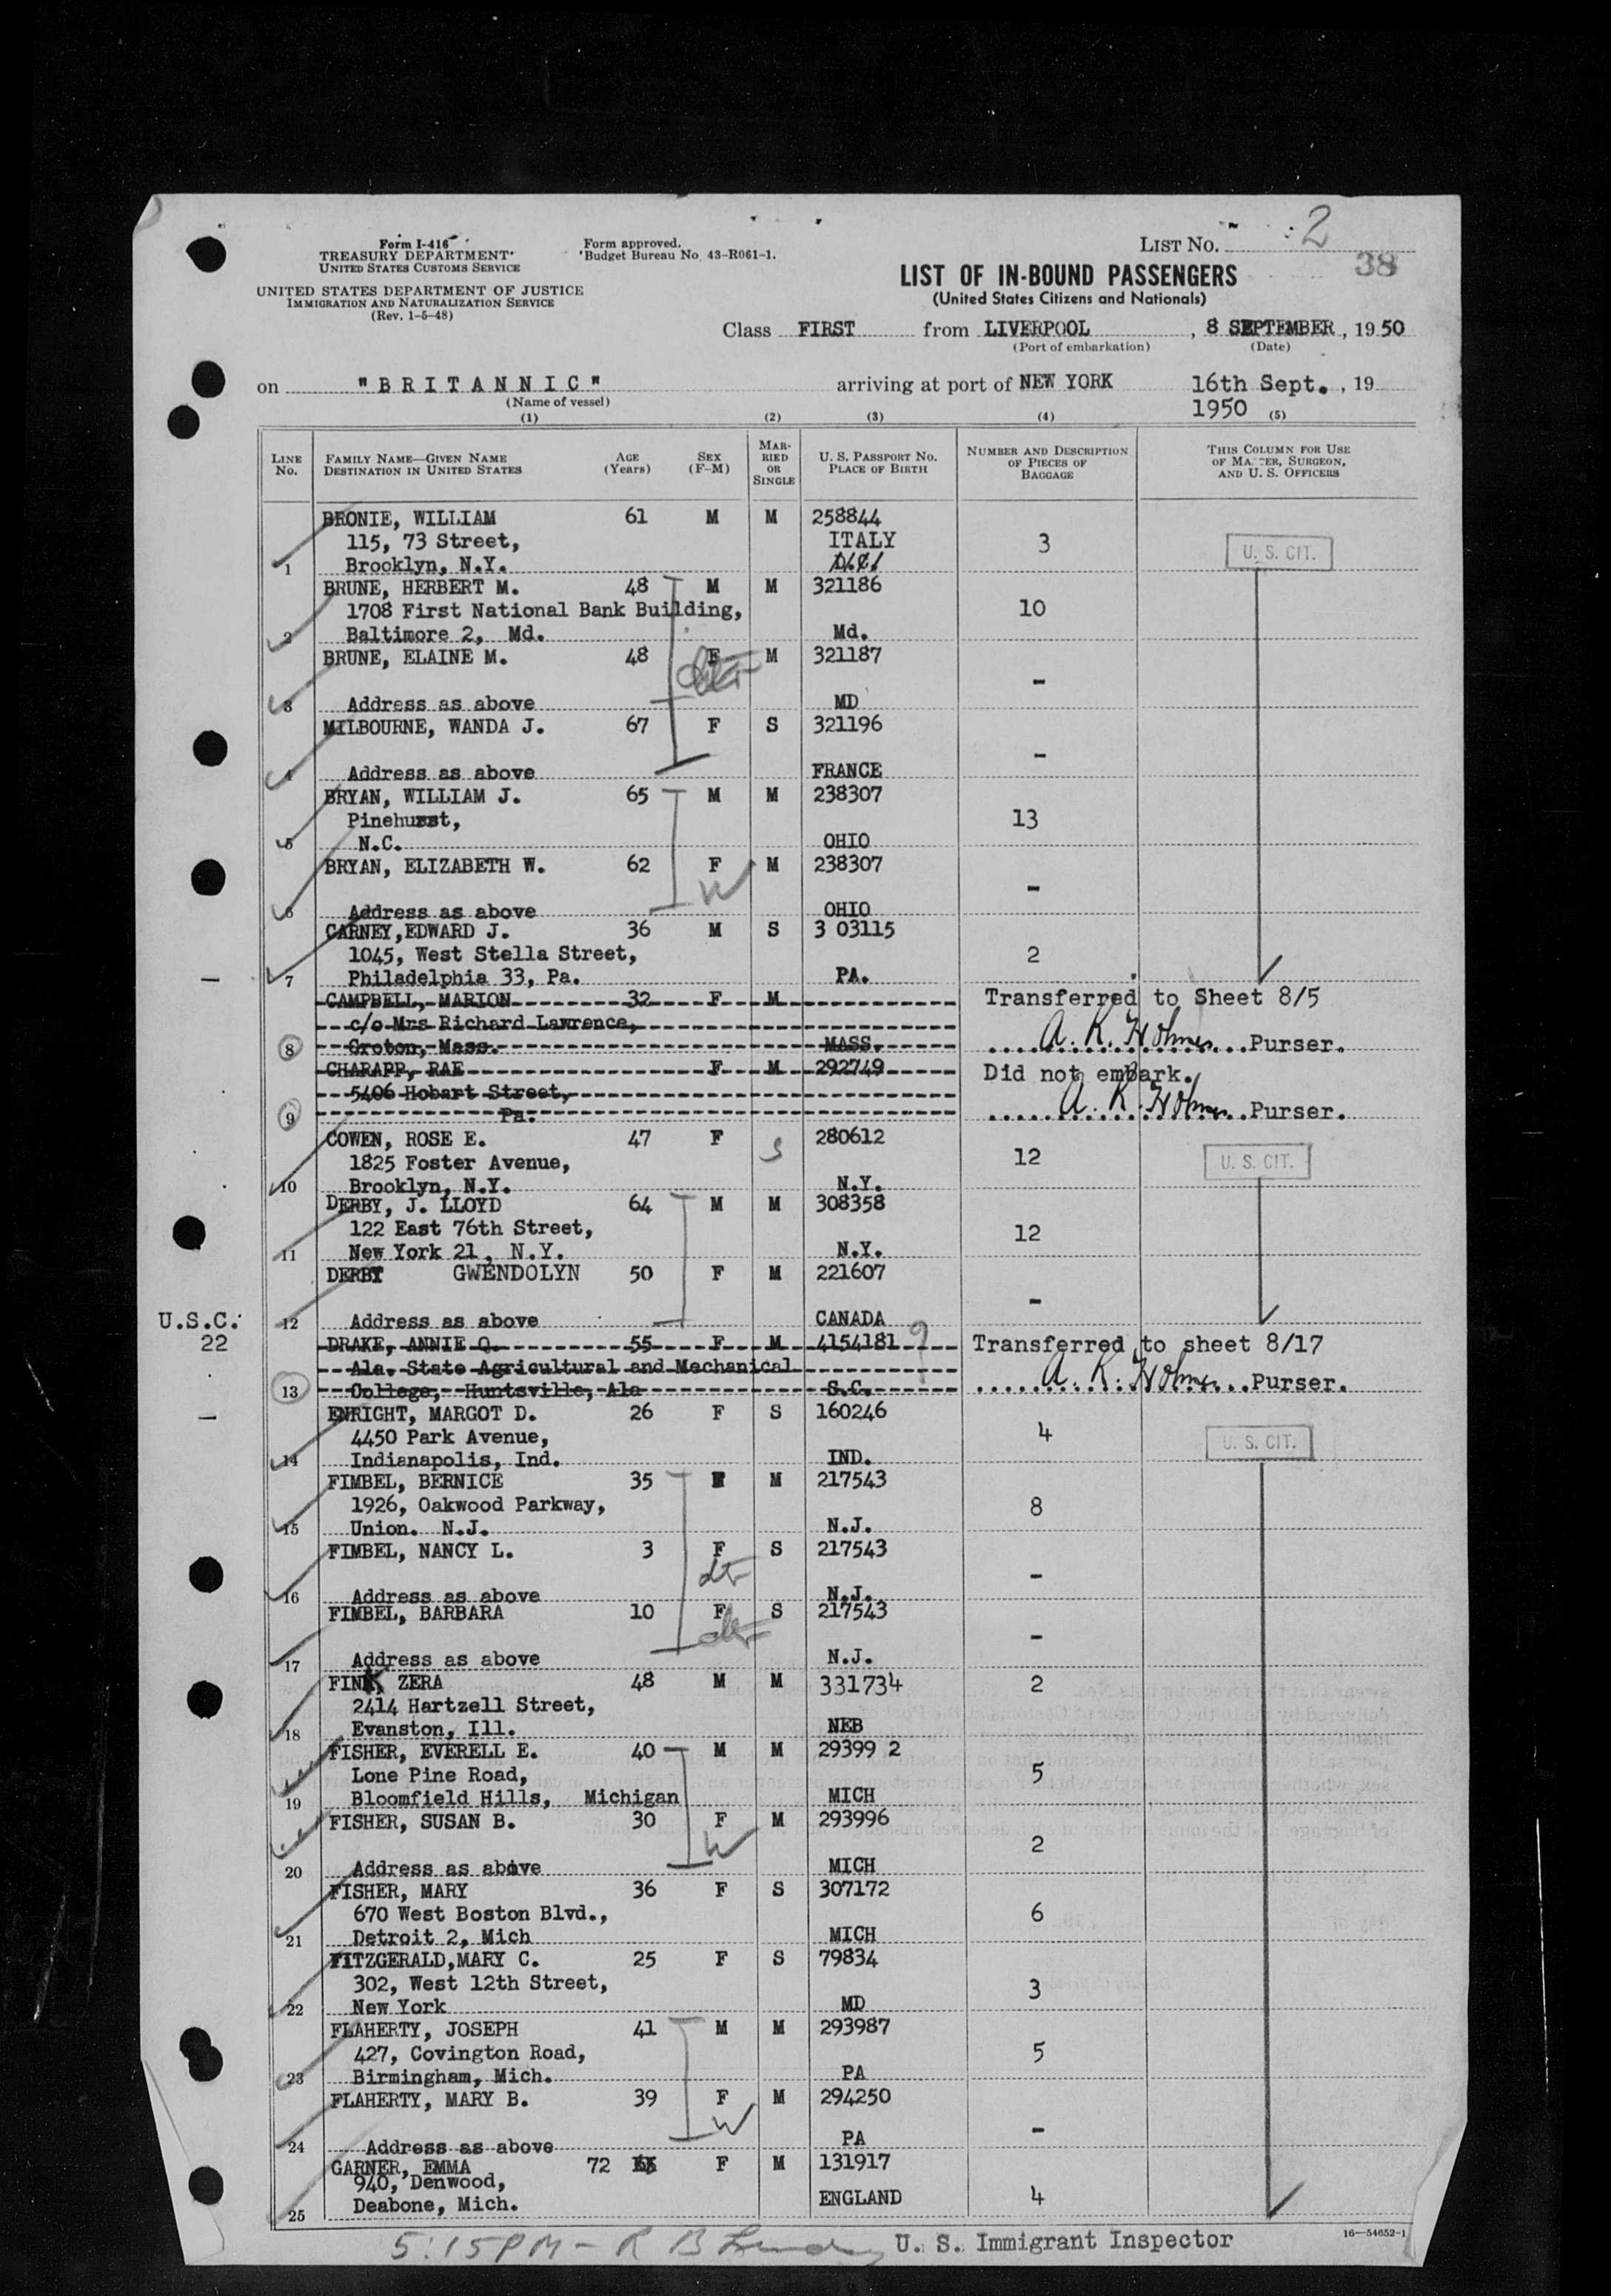 Form I-416
TREASURY DEPARTMENT
UNITED STATES CUSTOMS SERVICE
UNITED STATES DEPARTMENT OF JUSTICE
IMMIGRATION AND NATURALIZATION SERVICE
(Rev. 1-5-48)
Form approved.
Budget Bureau No. 43-R061-1.
LIST No. 2
38
LIST OF IN-BOUND PASSENGERS
(United States Citizens and Nationals)
Class FIRST from LIVERPOOL, 8 SEPTEMBER, 1950
(Port of embarkation) (Date)
on "BRITANNIC" arriving at port of NEW YORK 16th Sept., 19
(Name of vessel) 1950
(1) (2) (3) (4) (5)
LINE No. FAMILY NAME—GIVEN NAME DESTINATION IN UNITED STATES AGE (Years) SEX (F-M) MARRIED OR SINGLE U. S. PASSPORT NO. PLACE OF BIRTH NUMBER AND DESCRIPTION OF PIECES OF BAGGAGE THIS COLUMN FOR USE OF MASTER, SURGEON, AND U. S. OFFICERS
BRONIE, WILLIAM 61 M M 258844
115, 73 Street, ITALY 3 U. S. CIT.
1 Brooklyn, N.Y.
BRUNE, HERBERT M. 48 M M 321186
1708 First National Bank Building, 10
2 Baltimore 2, Md. Md.
BRUNE, ELAINE M. 48 F M 321187
-
3 Address as above MD
MILBOURNE, WANDA J. 67 F S 321196
-
4 Address as above FRANCE
BRYAN, WILLIAM J. 65 M M 238307
Pinehurst, 13
5 N.C. OHIO
BRYAN, ELIZABETH W. 62 F M 238307
W -
6 Address as above OHIO
CARNEY,EDWARD J. 36 M S 3 03115
1045, West Stella Street, 2
7 Philadelphia 33, Pa. PA.
CAMPBELL, MARION 32 F M Transferred to Sheet 8/5
c/o Mrs Richard Lawrence,
8 Groton, Mass. MASS. A. R. Holmes Purser.
CHARAPP, RAE F M 292749 Did not embark.
5406 Hobart Street,
9 Pa. A. R. Holmes Purser.
COWEN, ROSE E. 47 F S 280612
1825 Foster Avenue, 12 U. S. CIT.
10 Brooklyn, N.Y. N.Y.
DERBY, J. LLOYD 64 M M 308358
122 East 76th Street, 12
11 New York 21, N.Y. N.Y.
DERBY GWENDOLYN 50 F M 221607
-
U.S.C. 12 Address as above CANADA
22 DRAKE, ANNIE Q. 55 F M 4154181 9 Transferred to sheet 8/17
Ala. State Agricultural and Mechanical
13 College, Huntsville, Ala S.C. A. R. Holmes Purser.
ENRIGHT, MARGOT D. 26 F S 160246
4450 Park Avenue, 4 U. S. CIT.
14 Indianapolis, Ind. IND.
FIMBEL, BERNICE 35 F M 217543
1926, Oakwood Parkway, 8
15 Union. N.J. N.J.
FIMBEL, NANCY L. 3 F S 217543
dtr -
16 Address as above N.J.
FIMBEL, BARBARA 10 F S 217543
dtr -
17 Address as above N.J.
FINK, ZERA 48 M M 331734 2
2414 Hartzell Street,
18 Evanston, Ill. NEB
FISHER, EVERELL E. 40 M M 29399 2
Lone Pine Road, 5
19 Bloomfield Hills, Michigan MICH
FISHER, SUSAN B. 30 F M 293996
W 2
20 Address as above MICH
FISHER, MARY 36 F S 307172
670 West Boston Blvd., 6
21 Detroit 2, Mich MICH
FITZGERALD,MARY C. 25 F S 79834
302, West 12th Street, 3
22 New York MD
FLAHERTY, JOSEPH 41 M M 293987
427, Covington Road, 5
23 Birmingham, Mich. PA
FLAHERTY, MARY B. 39 F M 294250
W -
24 Address as above PA
GARNER, EMMA 72 F M 131917
940, Denwood,
25 Deabone, Mich. ENGLAND 4
5:15 PM - R B U. S. Immigrant Inspector 16—54652-1